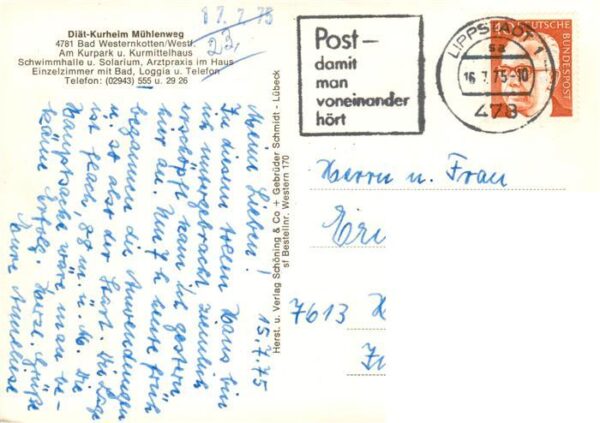 Diät-Kurheim Mühlenweg
4781 Bad Westernkotten/Westf.
Am Kurpark u. Kurmittelhaus
Schwimmhalle u. Solarium, Arztpraxis im Haus
Einzelzimmer mit Bad, Loggia u. Telefon
Telefon: (02943) 555 u. 29 26
17.7.75
22,
15.7.75
Meine Lieben!
In diesem tollen Haus bin
ich untergebracht, ziemlich
erschöpft kam ich gestern
hier an. Um 7 h heute früh
begannen die Anwendungen
ist flach, 88 m. ü. M. Die
Hauptsache wäre man be-
käme Erfolg. Herzl. Grüße
Eure Anneliese
Herst. u. Verlag Schöning & Co + Gebrüder Schmidt - Lübeck
sf Bestellnr. Western 170
Post-
damit
man
voneinander
hört
LIPPSTADT 1
sa
16.7.75-10
478
DEUTSCHE
BUNDESPOST
Herrn u. Frau
Eri
7613 H